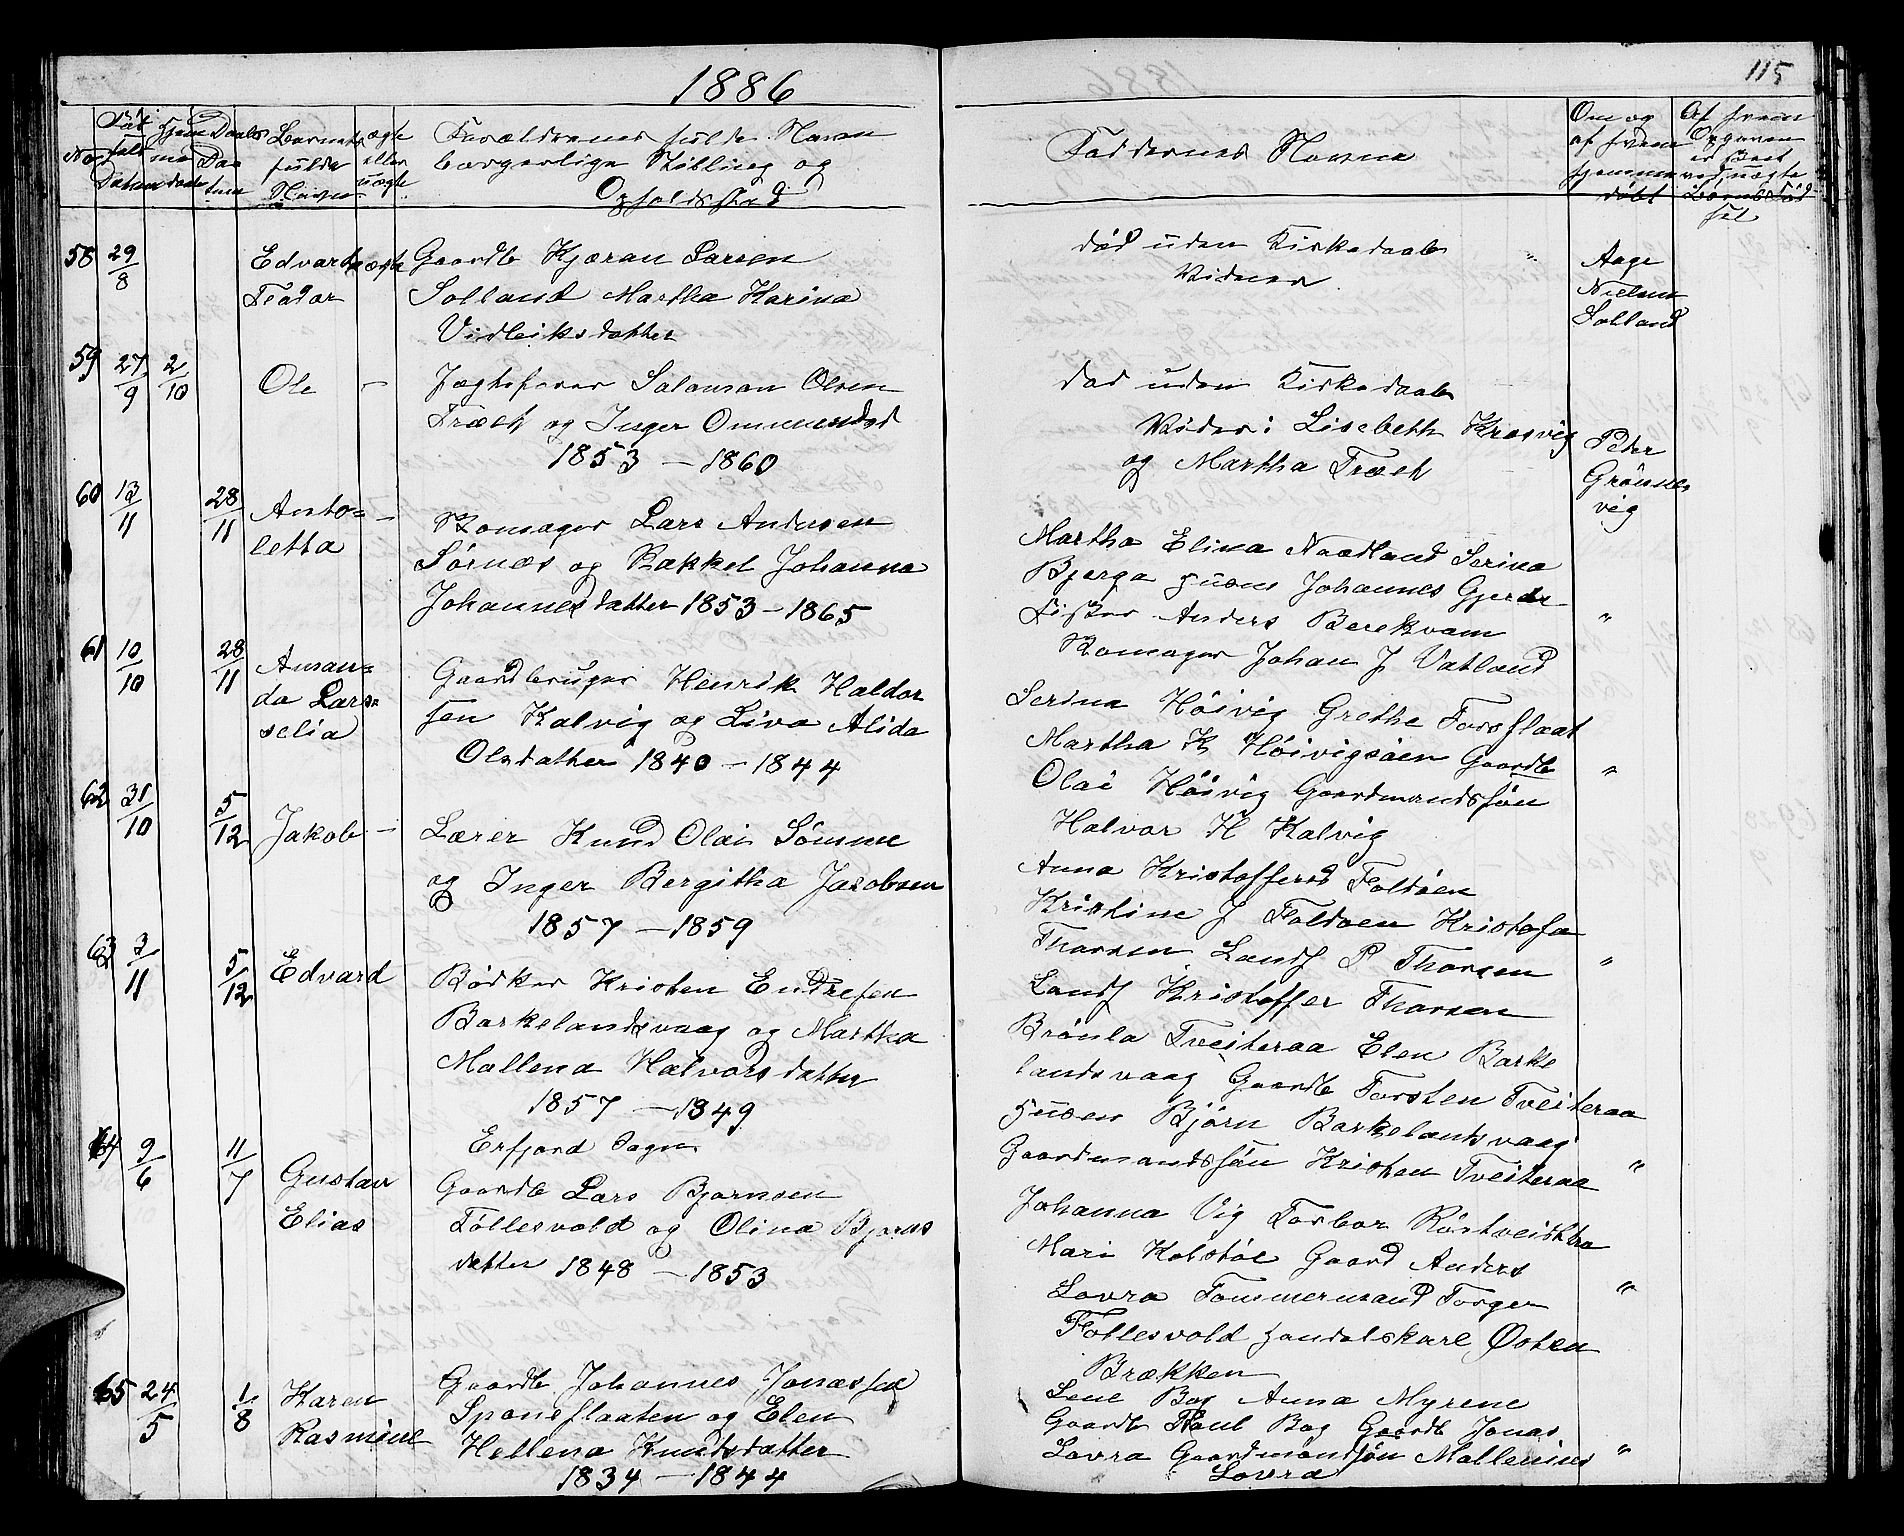 1886
115
No
Født
Datum
Hjemme
døbt
Daabs
Datum
Barnets
fulde
Navn
ægte
eller
uægte
Forældrenes fulde Navn
borgerlige Stilling og
Opholdssted
Faddernes Navne
Om og
af hvem
hjemme
døbt
Af hvem
Opgaven
er skeet
ved uægte
Børns Fød
sel
58 29/8 Edvard ægte Gaardb Kjæran Larsen
Teodor Solland Martha Karina
Vidleiksdatter
død uden Kirkedaab
Vidner
Aage
Nielsen
Solland
59 27/9 2/10 Ole – Jægtefører Salomon Olsen
Træet og Inger Ommundsd
1853 – 1860
død uden Kirkedaab
Vidner: Lisebeth Krosvig
og Martha Træet
Peter
Grønnes
vig
60 13/11 28/11 Anto= – Skomager Lars Andersen
letta Sørnæs og Rakkel Johanna
Johannesdatter 1853 – 1865
Martha Elina Naadland Serina
Bjerga Husm Johannes Gjerde
Fisker Anders Berekvam "
Skomager Johan J Vatland
61 10/10 28/11 Aman= Gaardbruger Henrik Haldor
da Lars= sen Kalvig og Liva Alida
selia Olsdatter 1840 – 1844
Serina Høivig Grethe Forsflaat
Martha K Høivigsøen Gaardb "
Olai Høivig Gaardmandssøn
Halvor H Kalvig
62 31/10 5/12 Jakob – Lærer Knud Olai Sømme
og Inger Bergitha Jacobsen
1857 – 1859
Anna Kristoffersd Foldøen
Kristine J Foldøen Kristofa
Thorsen Landh P Thorsen "
Landh Kristoffer Thorsen
63 3/11 5/12 Edvard Bødker Kristen Endresen
Barkelandsvaag og Martha
Mallena Halvorsdatter
1857 – 1849
Brønla Tveiteraa Elen Barke
landsvaag Gaardb Torsten Tveiteraa
Husm Bjørn Barkelandsvaag
Gaardmandssøn Kristen Tveiteraa "
Erfjord Sogn
64 9/6 11/7 Gustav Gaardb Lars Bjørnsen
Elias Tøllesvold og Olina Bjørns
datter 1848 – 1853
Johanna Vig Torbor
Mari Kolstøe Gaard Anders
Lovra Tømmermand Torger "
Follesvold Handelskare Østen
Brækken
65 24/5 1/8 Karen Gaardb Johannes Jonassen
Rasmine Spaneflaaten og Elen
Hellena Knudsdatter
1834 – 1844
Lene Bog Anna Myrene
Gaardb Poul Bog Gaardb Jonas
Lovra Gaardmandssøn Mallenius "
Lovra